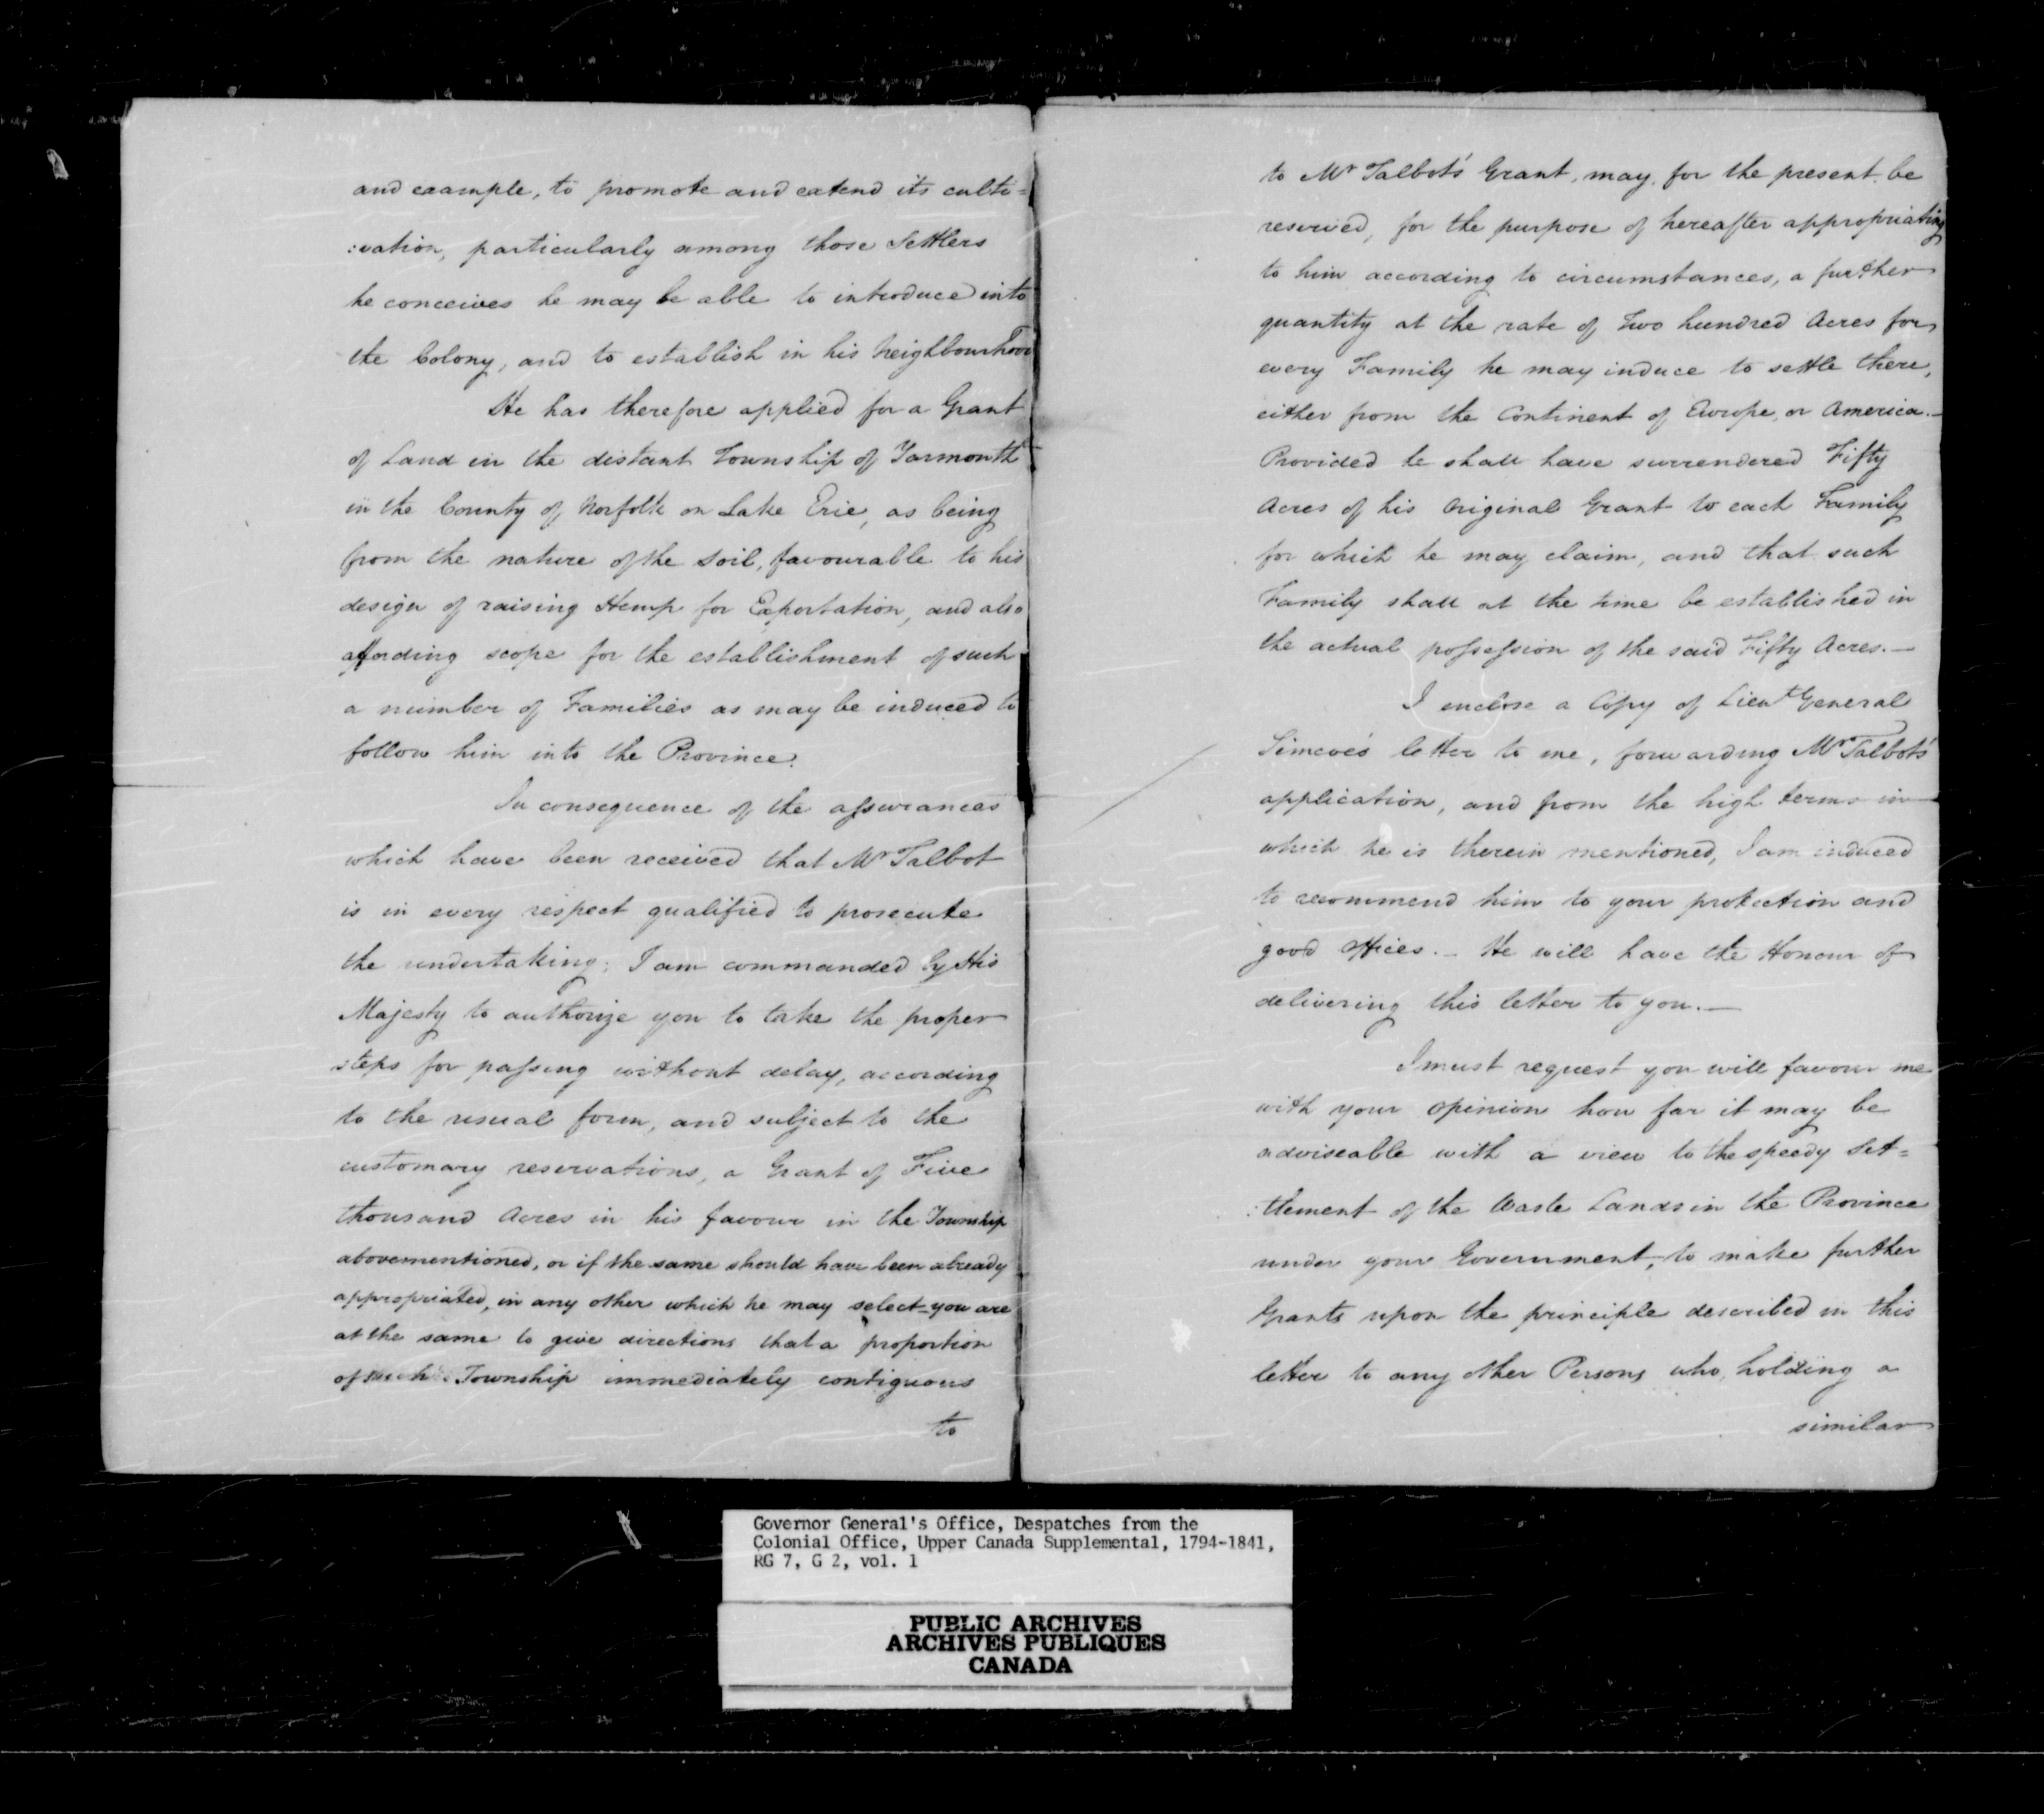 and example, to promote and extend its culti=
:vation, particularly among those Settlers
he conceives he may be able to introduce into
the Colony, and to establish in his Neighbourhood
He has therefore applied for a Grant
of Land in the distant Township of Yarmouth
in the County of Norfolk on Lake Erie, as being
from the nature of the Soil, favourable to his
design of raising Hemp for Exportation, and also
affording scope for the establishment of such
a number of Families as may be induced to
follow him into the Province.
In consequence of the assurances
which have been received that Mr Talbot
is in every respect qualified to prosecute
the undertaking; I am commanded by His
Majesty to authorize you to take the proper
steps for passing without delay, according
to the usual form, and subject to the
customary reservations, a Grant of Five
thousand Acres in his favour in the Township
abovementioned, or if the same should have been already
appropriated, in any other which he may select_you are
at the same to give directions that a proportion
of such Township immediately contiguous
to
to Mr Talbot's Grant, may, for the present be
reserved, for the purpose of hereafter appropriating
to him according to circumstances, a further
quantity at the rate of Two hundred Acres for
every Family he may induce to settle there,
either from the Continent of Europe, or America._
Provided he shall have surrendered Fifty
Acres of his Original Grant to each Family
for which he may claim, and that such
Family shall at the time be established in
the actual possession of the said Fifty Acres._
I enclose a Copy of Lieut General
Simcoe's letter to me, forwarding Mr Talbot's
application, and from the high terms in
which he is therein mentioned, I am induced
to recommend him to your protection and
good offices._ He will have the Honour of
delivering this letter to you._
I must request you will favour me
with your opinion how far it may be
adviseable with a view to the speedy Set=
:tlement of the Waste Lands in the Province
under your Government, to make further
Grants upon the principle described in this
letter to any other Persons who, holding a
similar
Governor General's Office, Despatches from the
Colonial Office, Upper Canada Supplemental, 1794-1841,
RG 7, G 2, vol. 1
PUBLIC ARCHIVES
ARCHIVES PUBLIQUES
CANADA